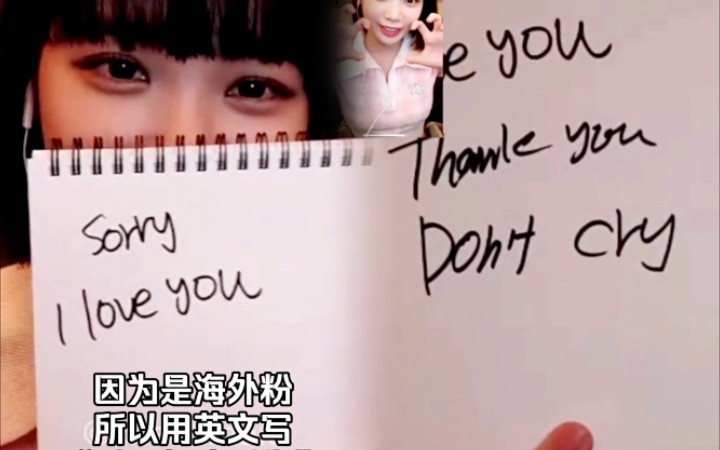 Sorry
I love you
e you
Thank you
Don't cry
因为是海外粉
所以用英文写